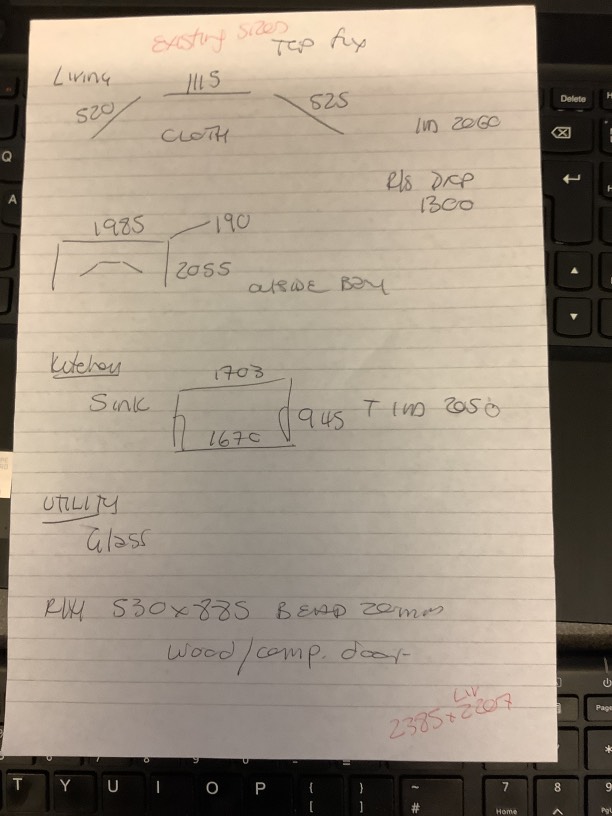 Existing sizes
TOP fix
Living
1115
520
525
CLOTH
2060
R/S DRP
1300
1985
190
2055
Kitchen
1703
Sink
945 T 2050
1670
UTILITY
Glass
530x885 BEAD 20mm
Wood/comp. door
LIV
2385x2207
Delete
Q
A
T Y U I O P { [ } ] ~ # 7 Home 8 9
Page